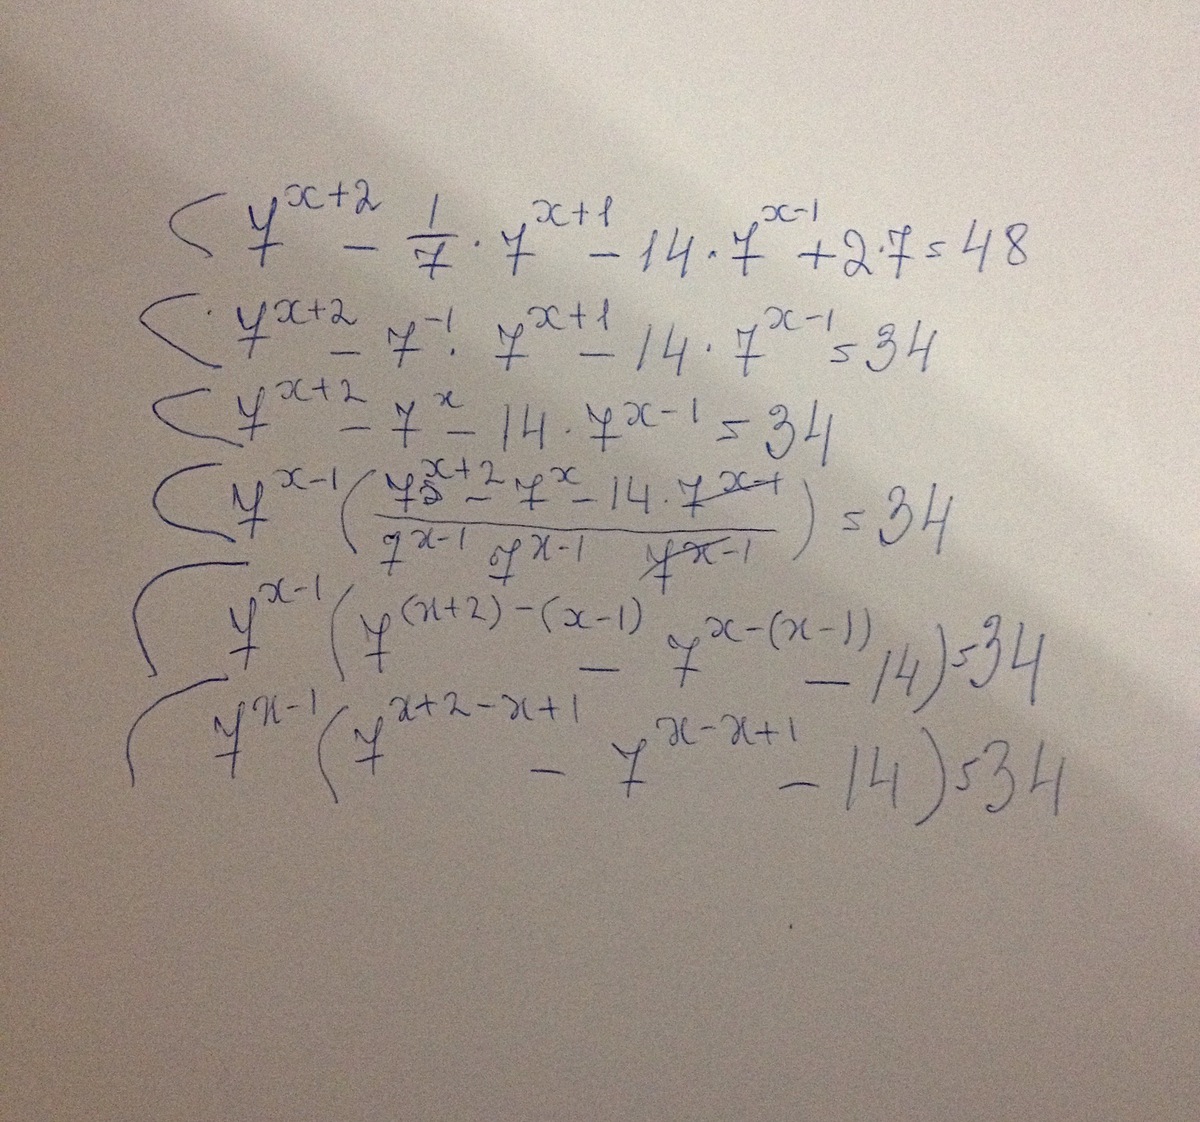 ( 7^{x+2} - \frac{1}{7} · 7^{x+1} - 14 · 7^{x-1} + 2·7 = 48
( 7^{x+2} - 7^{-1} · 7^{x+1} - 14 · 7^{x-1} = 34
( 7^{x+2} - 7^{x} - 14 · 7^{x-1} = 34
( 7^{x-1} ( \frac{7^{x+2} - 7^{x} - 14 · 7^{x-1}}{7^{x-1} 7^{x-1} 7^{x-1}} ) = 34
( 7^{x-1} ( 7^{(x+2)-(x-1)} - 7^{x-(x-1)} - 14 ) = 34
( 7^{x-1} ( 7^{x+2-x+1} - 7^{x-x+1} - 14 ) = 34